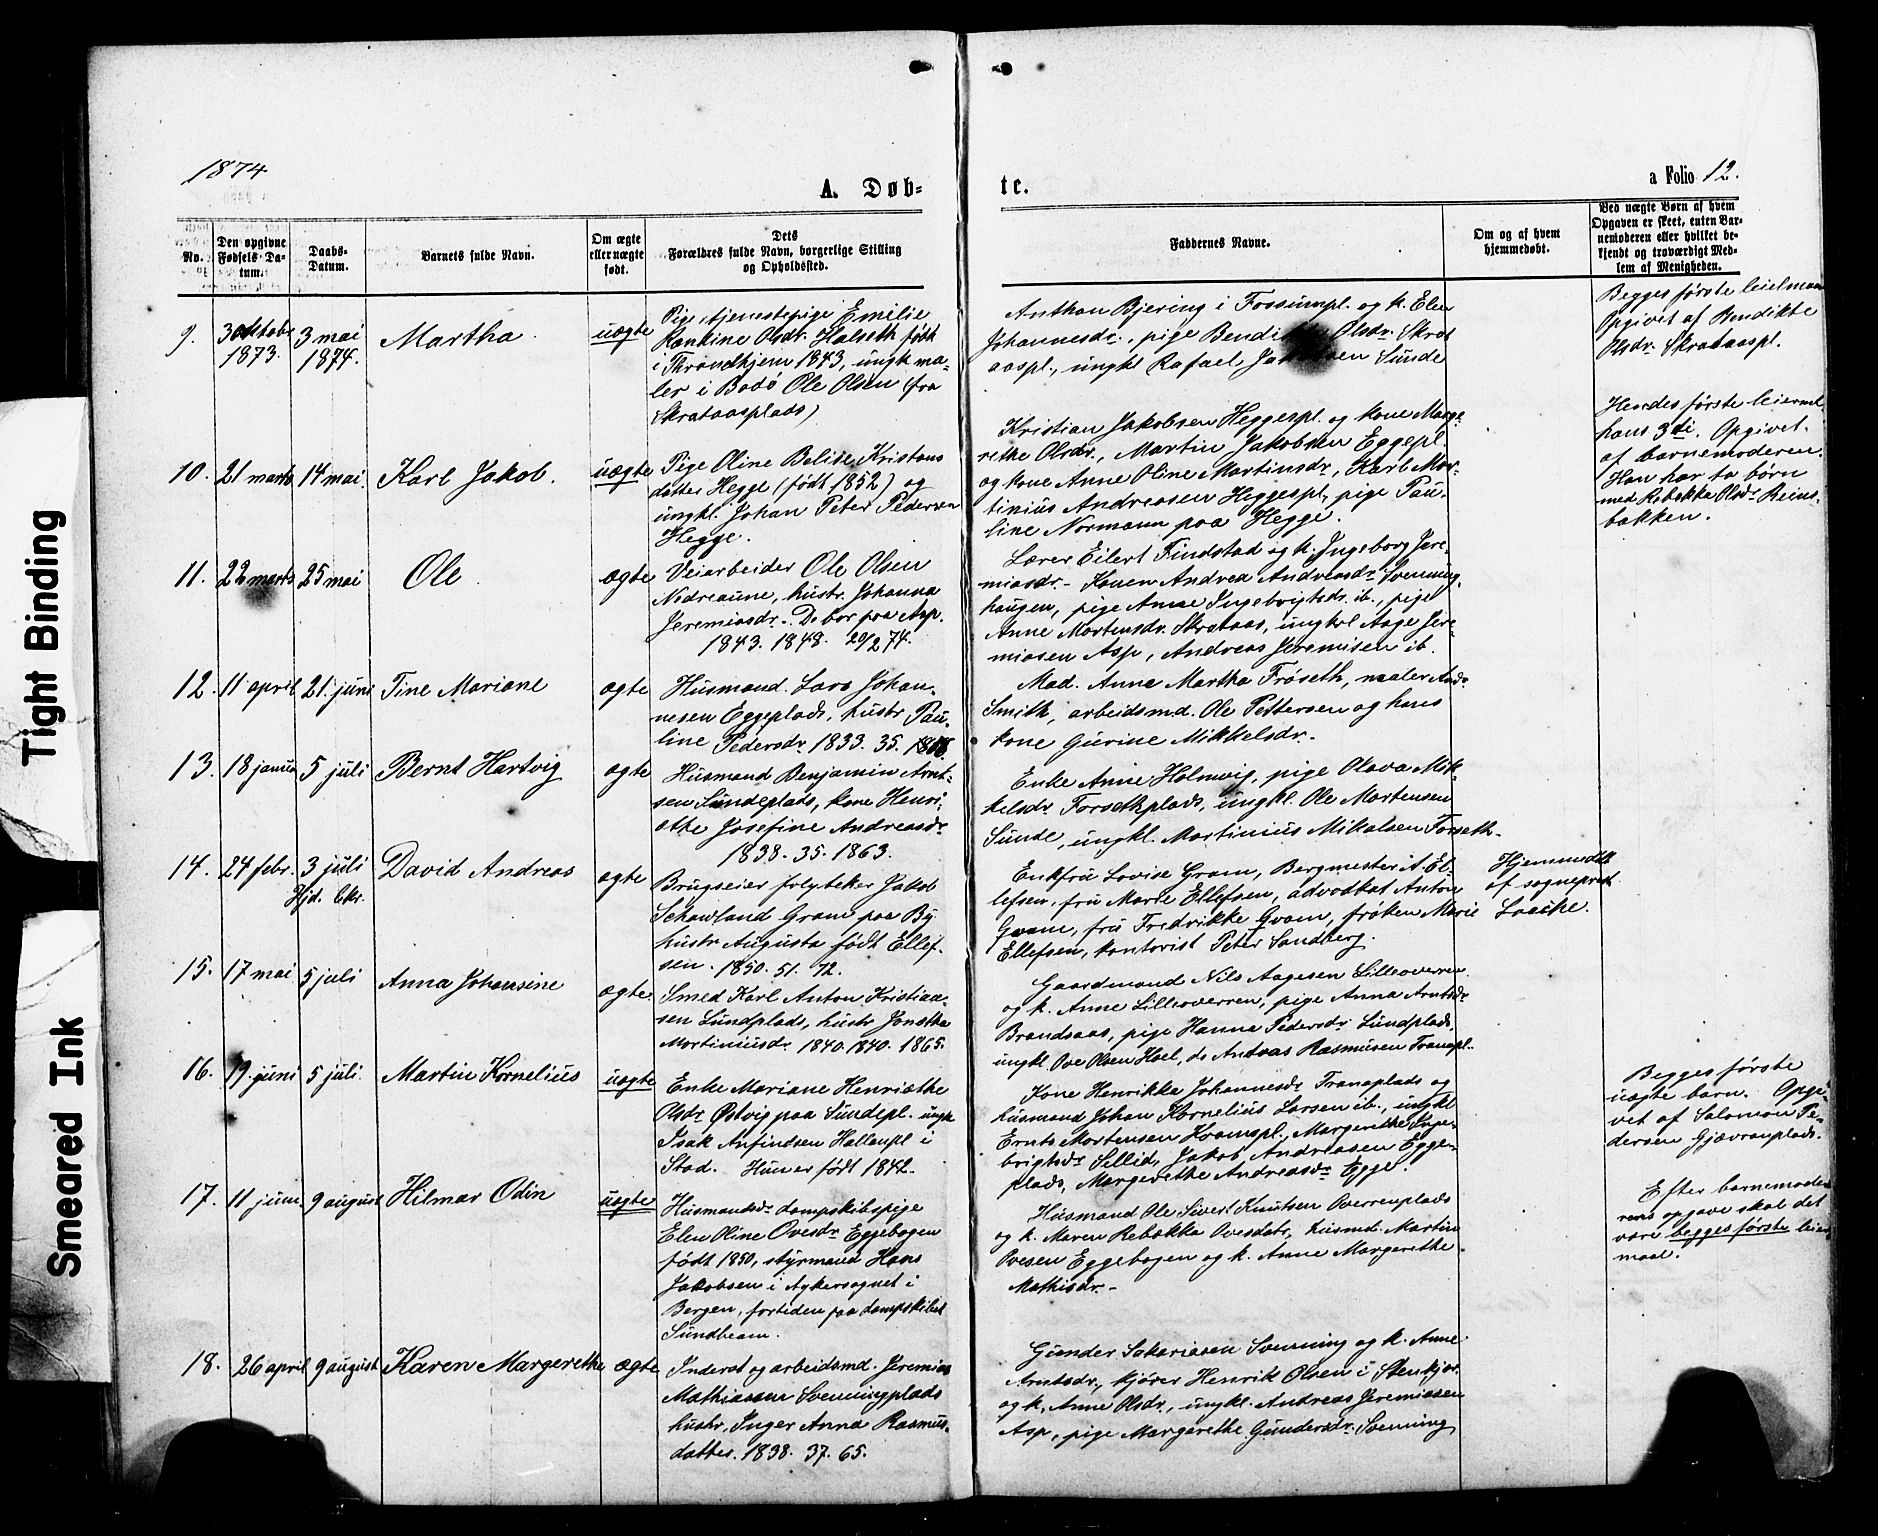 1874
A. Døb-
te.
a Folio 12.
No.
Den opgivne
Fødsels Da-
tum.
Daabs-
Datum.
Barnets fulde Navn.
Om ægte
eller uægte
født.
Dets
Forældres fulde Navn, borgerlige Stilling
og Opholdssted.
Faddernes Navne.
Om og af hvem
hjemmedøbt.
Ved uægte Børn af hvem
Opgaven er skeet, enten Bar-
nemoderen eller hvilket be-
kjendt og troværdigt Med-
lem af Menigheden.
9.
3 oktobr
1873.
3 mai
1874.
Martha.
uægte
Pige, tjenestepige Emelie
Rankine Olsdr. Halseth født
i Throndhjem 1843, ungk. ma-
ler i Bodö Ole Olsen (fra
Skrataasplads)
Anthon Bjering i Fossumpl. og k. Elen
Johannesdr., pige Olsdr. Skrat
aaspl., ungkl Rafael Sunde
Begges første leiermaal
Opgivet af Bendikte
Olsdr. Skrataaspl.
10.
21 marts
14 mai
Karl Jakob.
uægte
Pige Oline Belide Kristans
datter Hegge (født 1852) og
ungkl. Johan Peter Pedersen
Hegge.
Kristian Jakobsen Heggespl. og kone Marge-
rethe Olsdr., Martin Jakobsen Eggepl.
og kone Anne Oline Martinsdr., Karl Mar-
tinius Andreasen Heggespl., pige Pau-
line Normann paa Hegge.
Hendes første leiermaal
hans 3di. Opgivet
af barnemoderen.
Han har to børn
med Rebekka Olsdr. Reins-
bakken.
11.
22 marts
25 mai
Ole
ægte
Veiarbeider Ole Olsen
Nedreaune, hustr. Johanna
Jeremiasdr. De bor paa Asp.
1843. 1848. 20/2 74.
Lærer Eilert Findstad og k. Ingeborg Jere-
miasdr. - Konen Andrea Andreasdr. Svenning-
haugen, pige Anne Ingebrigtsdr. ib., pige
Anne Mortensdr. Skrataas, ungkrl Aage Jere-
miasen Asp, Andreas Jeremisen ib.
12.
11 april
21. juni
Tine Mariane
ægte
Husmand. Lars Johan-
nesen Eggeplads, hustr Pau-
line Pedersdr. 1833. 35.
Mad. Anne Martha Fröseth, maler Andr.
Smith, arbeidsmd. Ole Pettersen og hans
kone Gurine Mikkelsdr.
13.
18 januar
5 juli
Bernt Hartvig
ægte
Husmand Benjamin Arnt-
sen Sundeplads, kone Henri-
ette Josefine Andreasdr
1838. 35. 1863.
Enke Anne Holmvig, pige Olava Mik-
kelsdr. Forsethplads, ungkl. Ole Mortensen
Sunde, ungkl. Martinius Mikalsen Forseth.
14.
24 febr.
3 juli
Hjd. Ekr.
David Andreas
ægte
Brugseier, Jakob
Schavland Gram paa By
hustr Augusta født Ellef-
sen. 1850. 51. 72.
Enkfru Lovise Gram, Bergmester A. El-
lefsen, fru Marie Ellefsen, advokat Anton
Gram, fru Fredrikke Gram, frøken Marie
Ellefsen, kontorist Peter Sandberg.
Hjemmedøbt
af sogneprest
15.
17 mai
5 juli
Anna Johansine
ægte
Smed Karl Anton Kristian-
sen Lundplads, hustr Jonetha
Martiniusdr. 1840. 1840. 1865.
Gaardmand Nils Aagesen Lilleoverren
og k. Anne Lilleoverren, pige Anna Arntsdr
Brandsaas, pige Hanne Pedersdr Lundplads,
ungkl. Ove Olsen Hoel, do Andreas Rasmusen Tranapl.
16.
19. juni
5 juli.
Martin Kornelius
uægte
Enke Mariane Henriette
Olsdr Østvig paa Sundepl. ungk
Isak Anfindsen Hallanpl i
Stod. Hun er født 1842.
Kone Henrikka Johannesdr. Tranaplads og
husmand Johan Kornelius Larsen ib., ungkl
Ernts Mortensen Kvamspl., Margerethe Inge-
brigtsdr Sillid, Jakob Andreasen Egge-
plads, Margerethe Andreasdr Egge.
Begges første
uægte barn. Opgi-
vet af Salomon Pe-
dersen Gjævranplads.
17.
11 juni
9 august
Hilmar Odin
uægte
Husmandsdr. dampskibspige
Elen Oline Ovesdr Eggebogen
født 1850, styrmand Hans
Jakobsen i Aykersognet i
Bergen, fortiden paa dampskibet
Sundbeam.
Husmand Ole Sivert Knutsen Overrenplads
og k. Maren Rebekka Ovesdatr, husmd. Martin
Ovesen Eggebogen og k. Anne Margerethe
Mathisdr. -
Efter barnemode-
rens opgave skal det
være begges første leier-
maal.
18.
26 april
9 august
Karen Margerethe
ægte
Inderst og arbeidsmd. Jeremias
Mathiassen Svenningplads
hustr, Inger Anna Rasmus-
datter. 1838. 37. 65.
Gunder Sakariasen Svenning og k. Anne
Arntsdr., kjører Henrik Olsen i Stenkjær
og k. Anne Olsdr., ungkl. Andreas Jeremiasen
Asp, pige Margerethe Gundersdr. Svenning
Tight Binding
Smeared Ink